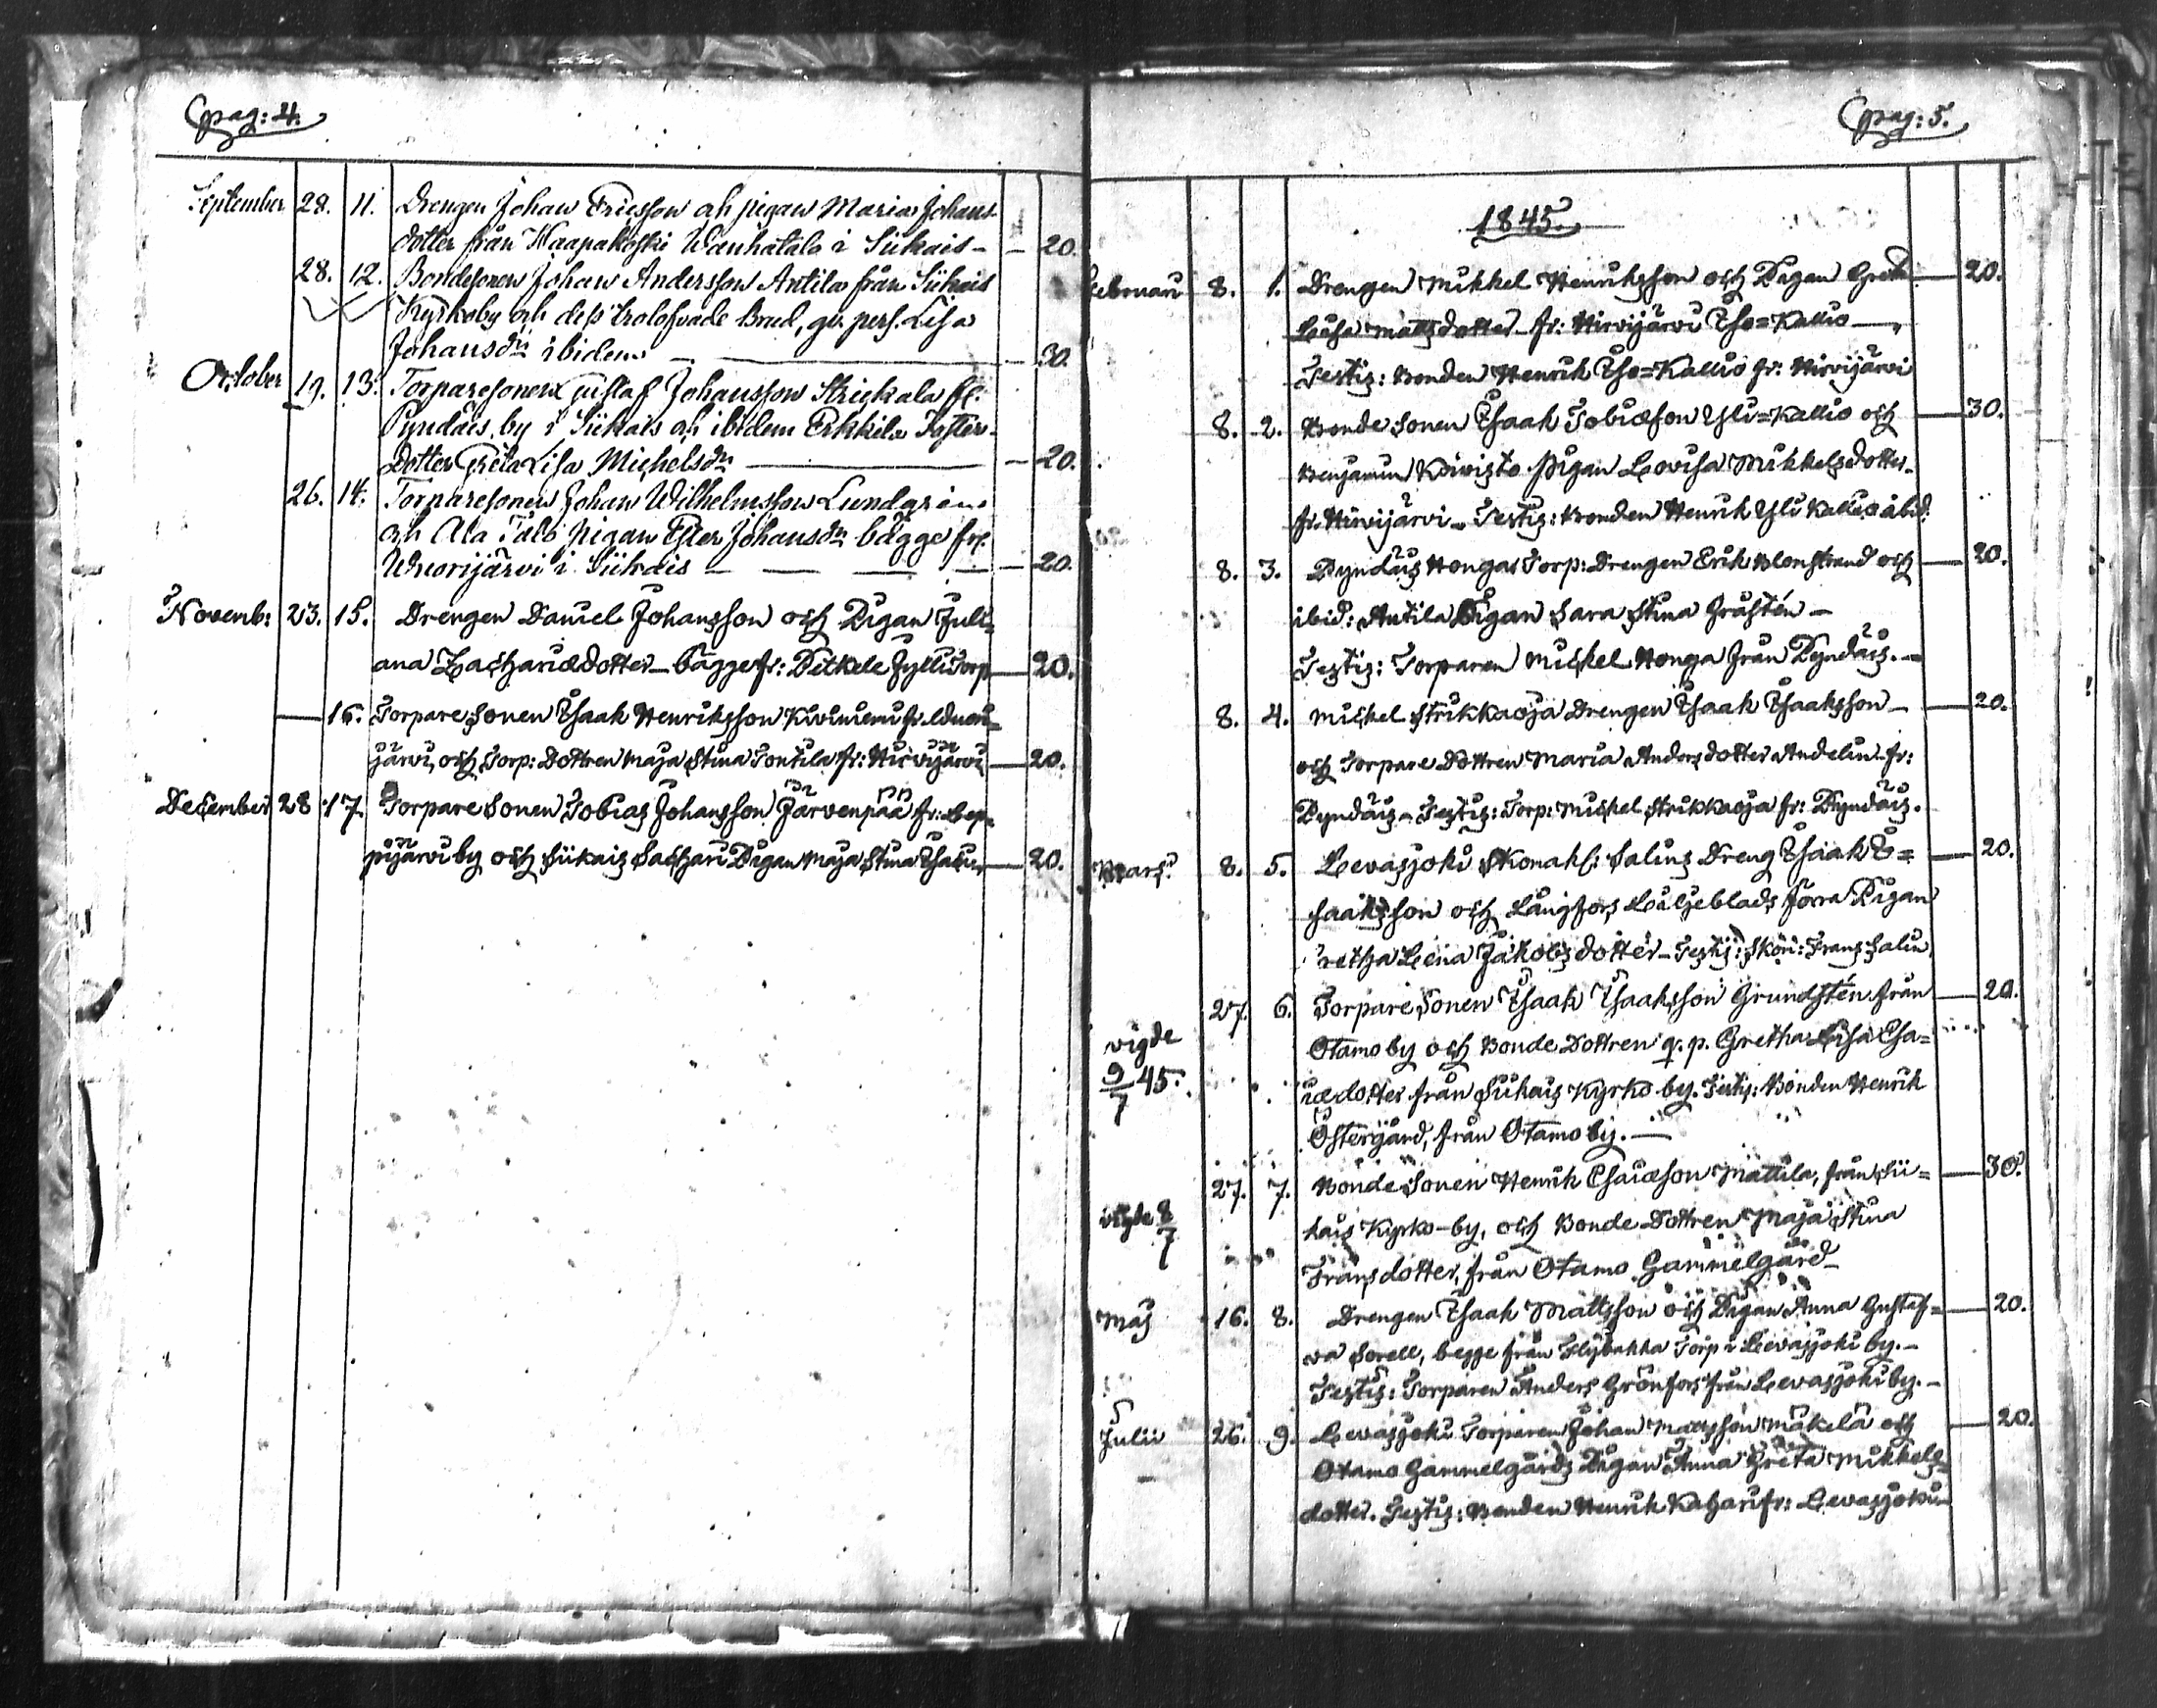 pag: 4.
September 28. 11. Drengen Johan Ericsson och pigan Maria Johans-
dotter från Haapakoski Wanhatalo i Siikais - - 20.
28. 12. Bondesonen Johan Andersson Antila från Siikais
Kyrkoby och dess trolofvade Brud, qv. pers. Lisa
Johansdr ibidem — — 30.
October 19. 13. Torparesonen Gustaf Johansson fr.
Pyndäis by i Siikais och ibidem Erkkilä Foster-
dotter Greta Lisa Michelsdr — — 20.
26. 14. Torparesonen Johan Wilhelmsson Lundgren
och Ala Talo pigan Ester Johansdr bägge frå.
Wuorijärvi i Siikais — — — — 20.
Novemb: 23. 15. Drengen Daniel Johansson och Pigan Juli-
ana Zachariædotter – bägge fr: Torp — 20.
— 16. Torpare Sonen Isaak Henriksson Kiviniemi fr.
järvi, och Torp: Dottren Maja Stina Tontila fr: Hirvijärvi — 20.
December 28 17. Torpare Sonen Tobias Johansson Järvenpää fr: Lep-
pijärvi by och Siikais Sachari Pigan Maja Stina — 20.
pag: 5.
1845.
Februari 8. 1. Drengen Mikkel Henriksson och Pigan Greta — 20.
Lisa Mattsdotter fr: Hirvijärvi Iso=Kallio —
Testis: Bonden Henrik Iso=Kallio fr: Hirvijärvi
8. 2. Bonde Sonen Isaak Tobiæson Yli=Kallio och — 30.
Benjamin Koivisto Pigan Lovisa Mikkelsdotter
fr. Hirvijärvi – Testis: Bonden Henrik Yli Kallio ibid:
8. 3. Pyndäis Honga Torp: Drengen Erik Blomstrand och — 20.
ibid: Antila Pigan Sara Stina Gråstén –
Testis: Torparen Mickel Honga från Pyndäis. –
8. 4. Mickel Strikkaoja Drengen Isaak Isaaksson – — 20.
och Torpare Dottren Maria Andersdotter Andelin fr:
Pyndäis – Testis: Torp: Mickel Strikkaoja fr: Pyndäis.
Mars 8. 5. Levasjoki Skomak: Salins Dreng Isaak I= — 20.
saaksson och Långfors Liljeblads förra Pigan
retha Lena Jakobsdotter – Testis: Skom: Frans Salin
27. 6. Torpare Sonen Isaak Isaaksson Grundstén från — 20.
vigde Otamo by och Bonde Dottren q. p. Gretha Lisa Esa=
9/7 45. iædotter från Siikais Kyrko by. Testis: Bonden Henrik
Östergård, från Otamo by. —
27. 7. Bonde Sonen Henrik Esaiæson Mattila, från Sii= — 30.
vigde 8/7 kais Kyrko-by, och Bonde Dottren Maja Stina
Fransdotter, från Otamo Gammelgård –
Maj 16. 8. Drengen Isaak Mattsson och Pigan Anna Gustaf= — 20.
va Sorell, begge från Torp i Levasjoki by. –
Testis: Torparen Anders Grönfors från Levasjoki by. –
Julii 26. 9. Levasjoki Torparen Johan Mattsson Mäkelä och — 20.
Otamo Gammelgårds Pigan Anna Greta Mikkels-
dotter. Testis: Bonden Henrik Kahari fr: Levasjoki